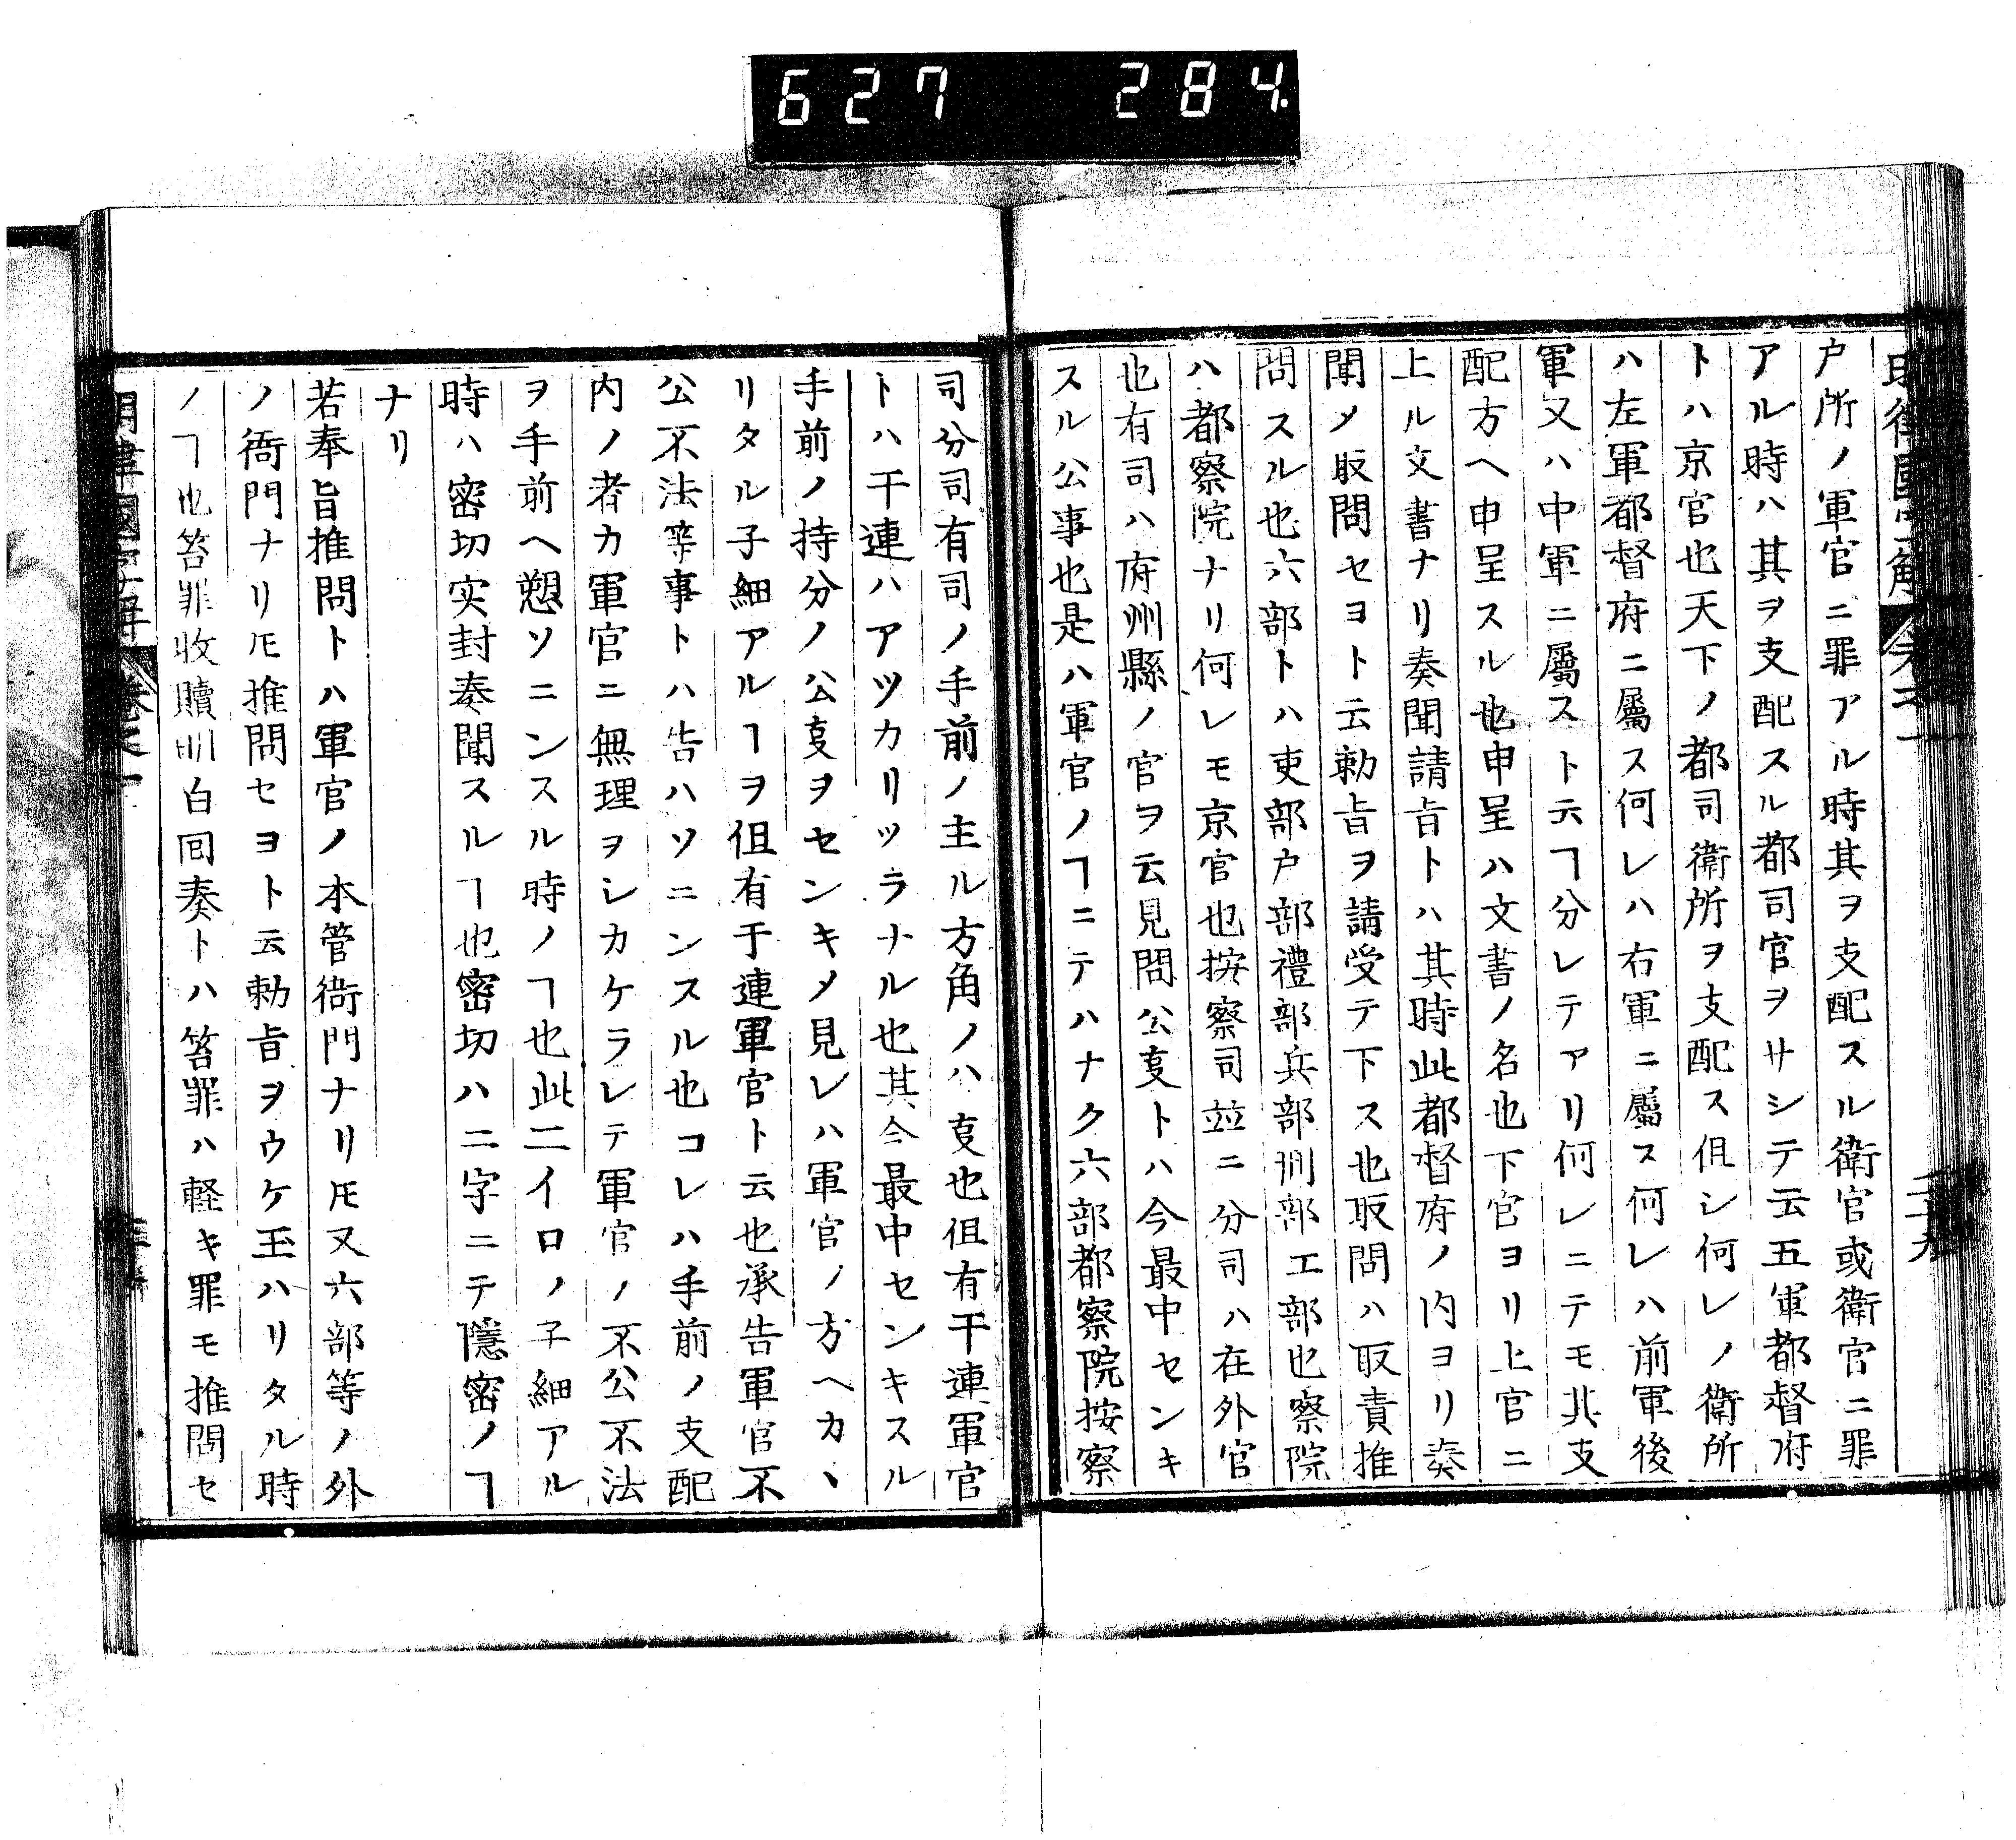 627 284
戸所ノ軍官ニ罪アル時其ヲ支配スル衛官或衛官ニ罪
アル時ハ其ヲ支配スル都司官ヲサシテ云五軍都督府
トハ京官也天下ノ都司衛所ヲ支配ス但シ何レノ衛所
ハ左軍都督府ニ屬ス何レハ右軍ニ屬ス何レハ前軍後
軍又ハ中軍ニ屬スト云ヿ分レテアリ何レニテモ其支
配方ヘ申呈スル也申呈ハ文書ノ名也下官ヨリ上官ニ
上ル文書ナリ奏聞請旨トハ其時此都督府ノ内ヨリ奏
聞メ取問セヨト云勅旨ヲ請受テ下ス也取問ハ取責推
問スル也六部トハ吏部戸部禮部兵部刑部工部也察院
ハ都察院ナリ何レモ京官也按察司並ニ分司ハ在外官
也有司ハ府州縣ノ官ヲ云見問公叓トハ今最中センキ
スル公事也是ハ軍官ノヿニテハナク六部都察院按察
司分司有司ノ手前ノ主ル方角ノハ叓也但有干連軍官
トハ干連ハアツカリツラナル也其今最中センキスル
手前ノ持分ノ公叓ヲセンキメ見レハ軍官ノ方ヘカヽ
リタル子細アルヿヲ但有于連軍官ト云也承告軍官不
公不法等事トハ告ハソニンスル也コレハ手前ノ支配
内ノ者カ軍官ニ無理ヲシカケラレテ軍官ノ不公不法
ヲ手前ヘ愬ソニンスル時ノヿ也此二イロノ子細アル
時ハ密切実封奏聞スルヿ也密切ハ二字ニテ隱密ノヿ
ナリ
若奉旨推問トハ軍官ノ本管衙門ナリ𪜈又六部等ノ外
ノ衙門ナリ𪜈推問セヨト云勅旨ヲウケ玉ハリタル時
ノヿ也笞罪收贖明白回奏トハ笞罪ハ軽キ罪モ推問セ